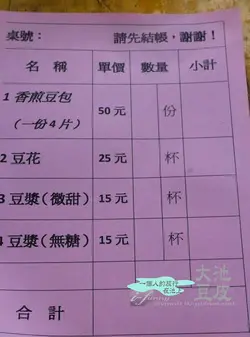 桌號： 請先結帳，謝謝！
名 稱 單價 數量 小計
1 香煎豆包
（一份4片） 50 元 份
2 豆花 25 元 杯
3 豆漿（微甜） 15 元 杯
4 豆漿（無糖） 15 元 杯
合 計
一個人的旅行
大池
豆皮